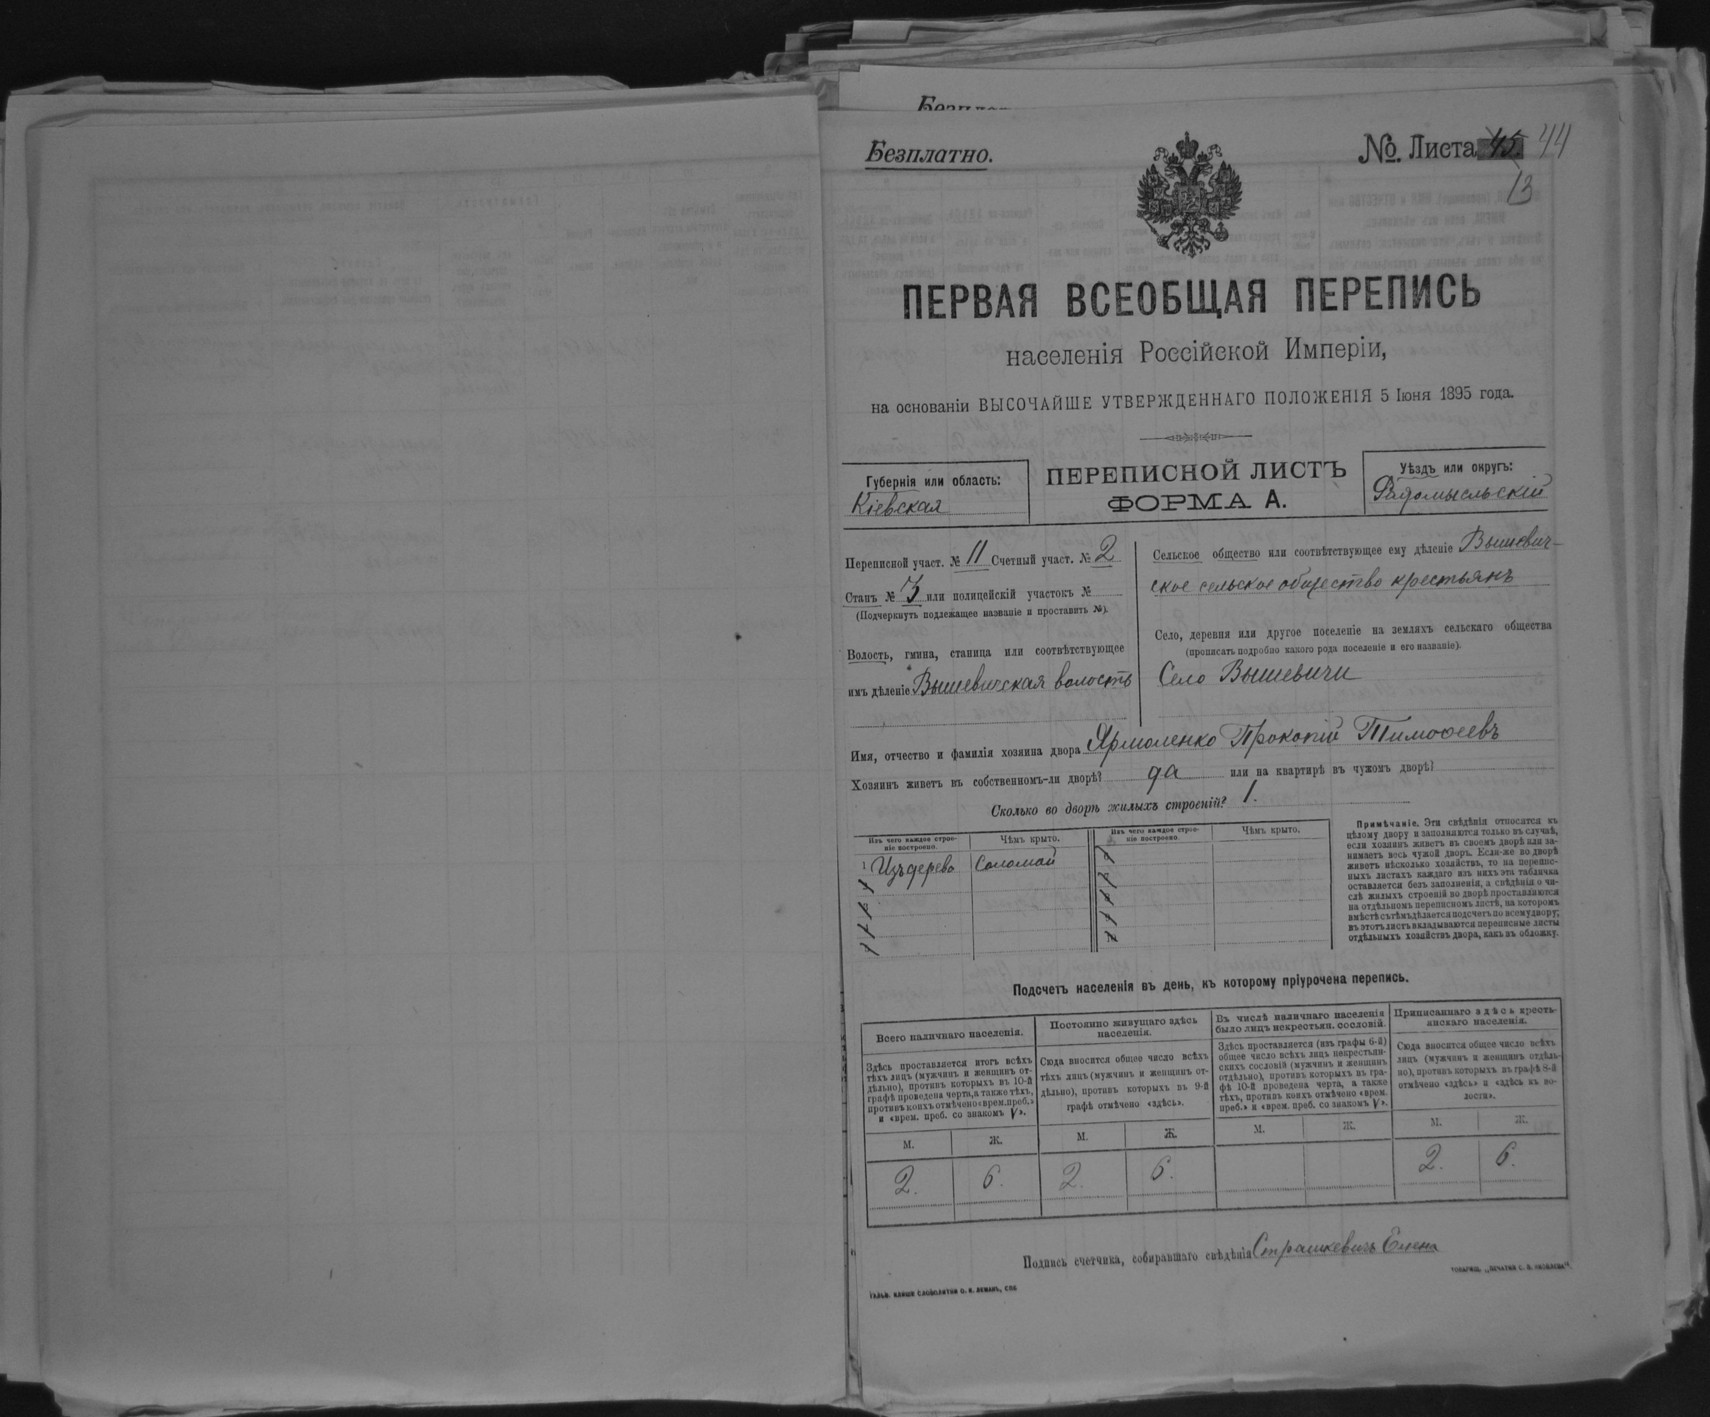 Безплатно.
№. Листа 45 44
13
ПЕРВАЯ ВСЕОБЩАЯ ПЕРЕПИСЬ
населенія Россійской Имперіи,
на основаніи ВЫСОЧАЙШЕ УТВЕРЖДЕННАГО ПОЛОЖЕНІЯ 5 Іюня 1895 года.
Губернія или область:
Кіевская
ПЕРЕПИСНОЙ ЛИСТЪ
ФОРМА А.
Уѣздъ или округъ:
Радомысльскій
Переписной участ. № 11 Счетный участ. № 2
Станъ № 3 или полицейскій участокъ №
(Подчеркнуть подлежащее названіе и проставить №).
Волость, гмина, станица или соотвѣтствующее
имъ дѣленіе Вышевичская волость
Сельское общество или соотвѣтствующее ему дѣленіе Вышевич-
ское сельское общество крестьянъ
Село, деревня или другое поселеніе на земляхъ сельскаго общества
(прописать подробно какого рода поселеніе и его названіе).
Село Вышевичи
Имя, отчество и фамилія хозяина двора Ярмоленко Прокопій Тимофеевъ
Хозяинъ живетъ въ собственномъ-ли дворѣ? да или на квартирѣ въ чужомъ дворѣ?
Сколько во дворѣ жилыхъ строеній? 1.
Изъ чего каждое строе-
ніе построено.
Чѣмъ крыто.
Изъ чего каждое строе-
ніе построено.
Чѣмъ крыто.
1 Изъ дерева Соломой
Примѣчаніе. Эти свѣдѣнія относятся къ
цѣлому двору и заполняются только въ случаѣ,
если хозяинъ живетъ въ своемъ дворѣ или за-
нимаетъ весь чужой дворъ. Если-же во дворѣ
живетъ нѣсколько хозяйствъ, то на перепис-
ныхъ листахъ каждаго изъ нихъ эта табличка
оставляется безъ заполненія, а свѣдѣнія о чи-
слѣ жилыхъ строеній во дворѣ проставляются
на отдѣльномъ переписномъ листѣ, на которомъ
вмѣстѣ съ тѣмъ дѣлается подсчетъ по всему двору;
въ этотъ листъ вкладываются переписные листы
отдѣльныхъ хозяйствъ двора, какъ въ обложку.
Подсчетъ населенія въ день, къ которому пріурочена перепись.
Всего наличнаго населенія.
Здѣсь проставляется итогъ всѣхъ
тѣхъ лицъ (мужчинъ и женщинъ от-
дѣльно), противъ которыхъ въ 10-й
графѣ проведена черта, а также тѣхъ,
противъ коихъ отмѣчено «врем. преб.»
и «врем. преб. со знакомъ V».
Постоянно живущаго здѣсь
населенія.
Сюда вносится общее число всѣхъ
тѣхъ лицъ (мужчинъ и женщинъ от-
дѣльно), противъ которыхъ въ 9-й
графѣ отмѣчено «здѣсь».
Въ числѣ наличнаго населенія
было лицъ некрестьян. сословій.
Здѣсь проставляется (изъ графы 6-й)
общее число всѣхъ лицъ некрестьян-
скихъ сословій (мужчинъ и женщинъ
отдѣльно), противъ которыхъ въ гра-
фѣ 10-й проведена черта, а также
тѣхъ, противъ коихъ отмѣчено «врем.
преб.» и «врем. преб. со знакомъ V».
Приписаннаго здѣсь кресть-
янскаго населенія.
Сюда вносится общее число всѣхъ
лицъ (мужчинъ и женщинъ отдѣль-
но), противъ которыхъ въ графѣ 8-й
отмѣчено «здѣсь» и «здѣсь къ во-
лости».
М. Ж. М. Ж. М. Ж. М. Ж.
2. 6. 2. 6. 2. 6.
Подпись счетчика, собиравшаго свѣдѣнія Страшкевичъ Елена